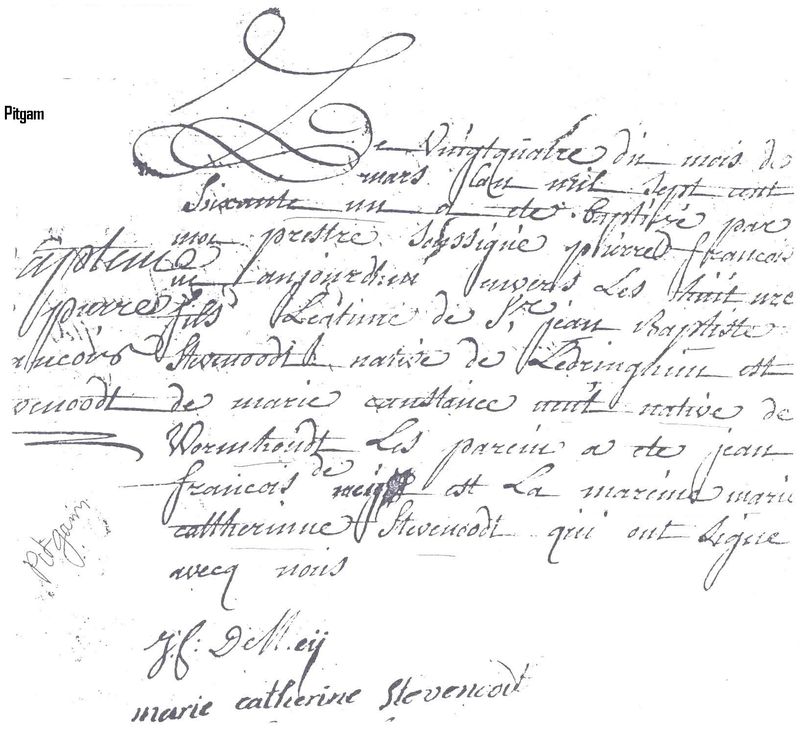 Pitgam
Le Vingtquatre du mois de
mars Lan mil sept cent
Soixante un a ete baptisé par
moi prestre soussigné pierre françois
ne aujourdhui envers les huit ure
fils Legtime de Sr jean Baptiste
Stevenoodt native de Ledringhim est
de marie constance native de
Wormhoudt Les parein a ete jean
francois de meij est La mareine marie
cattherinne Stevenoodt qui ont signe
avecq nous
Bapteme
pierre
francois
Stevenoodt
Pitgam
J: f: DeMeij
marie catherine Stevenoodt